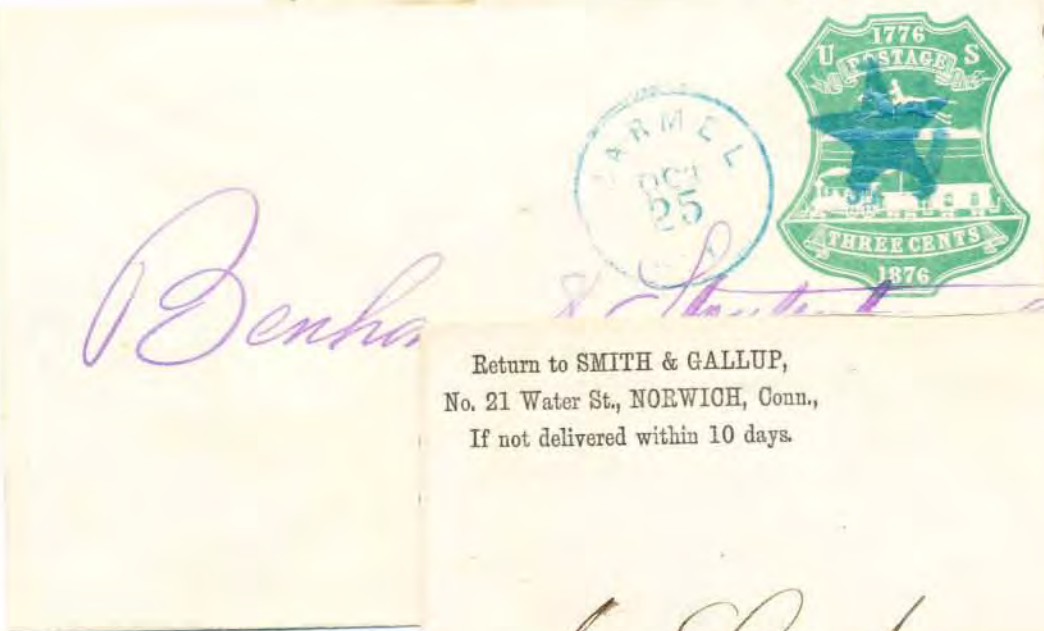 1776
U POSTAGE S
THREE CENTS
1876
CARMEL
OCT
25
&
Return to SMITH & GALLUP,
No. 21 Water St., NORWICH, Conn.,
If not delivered within 10 days.